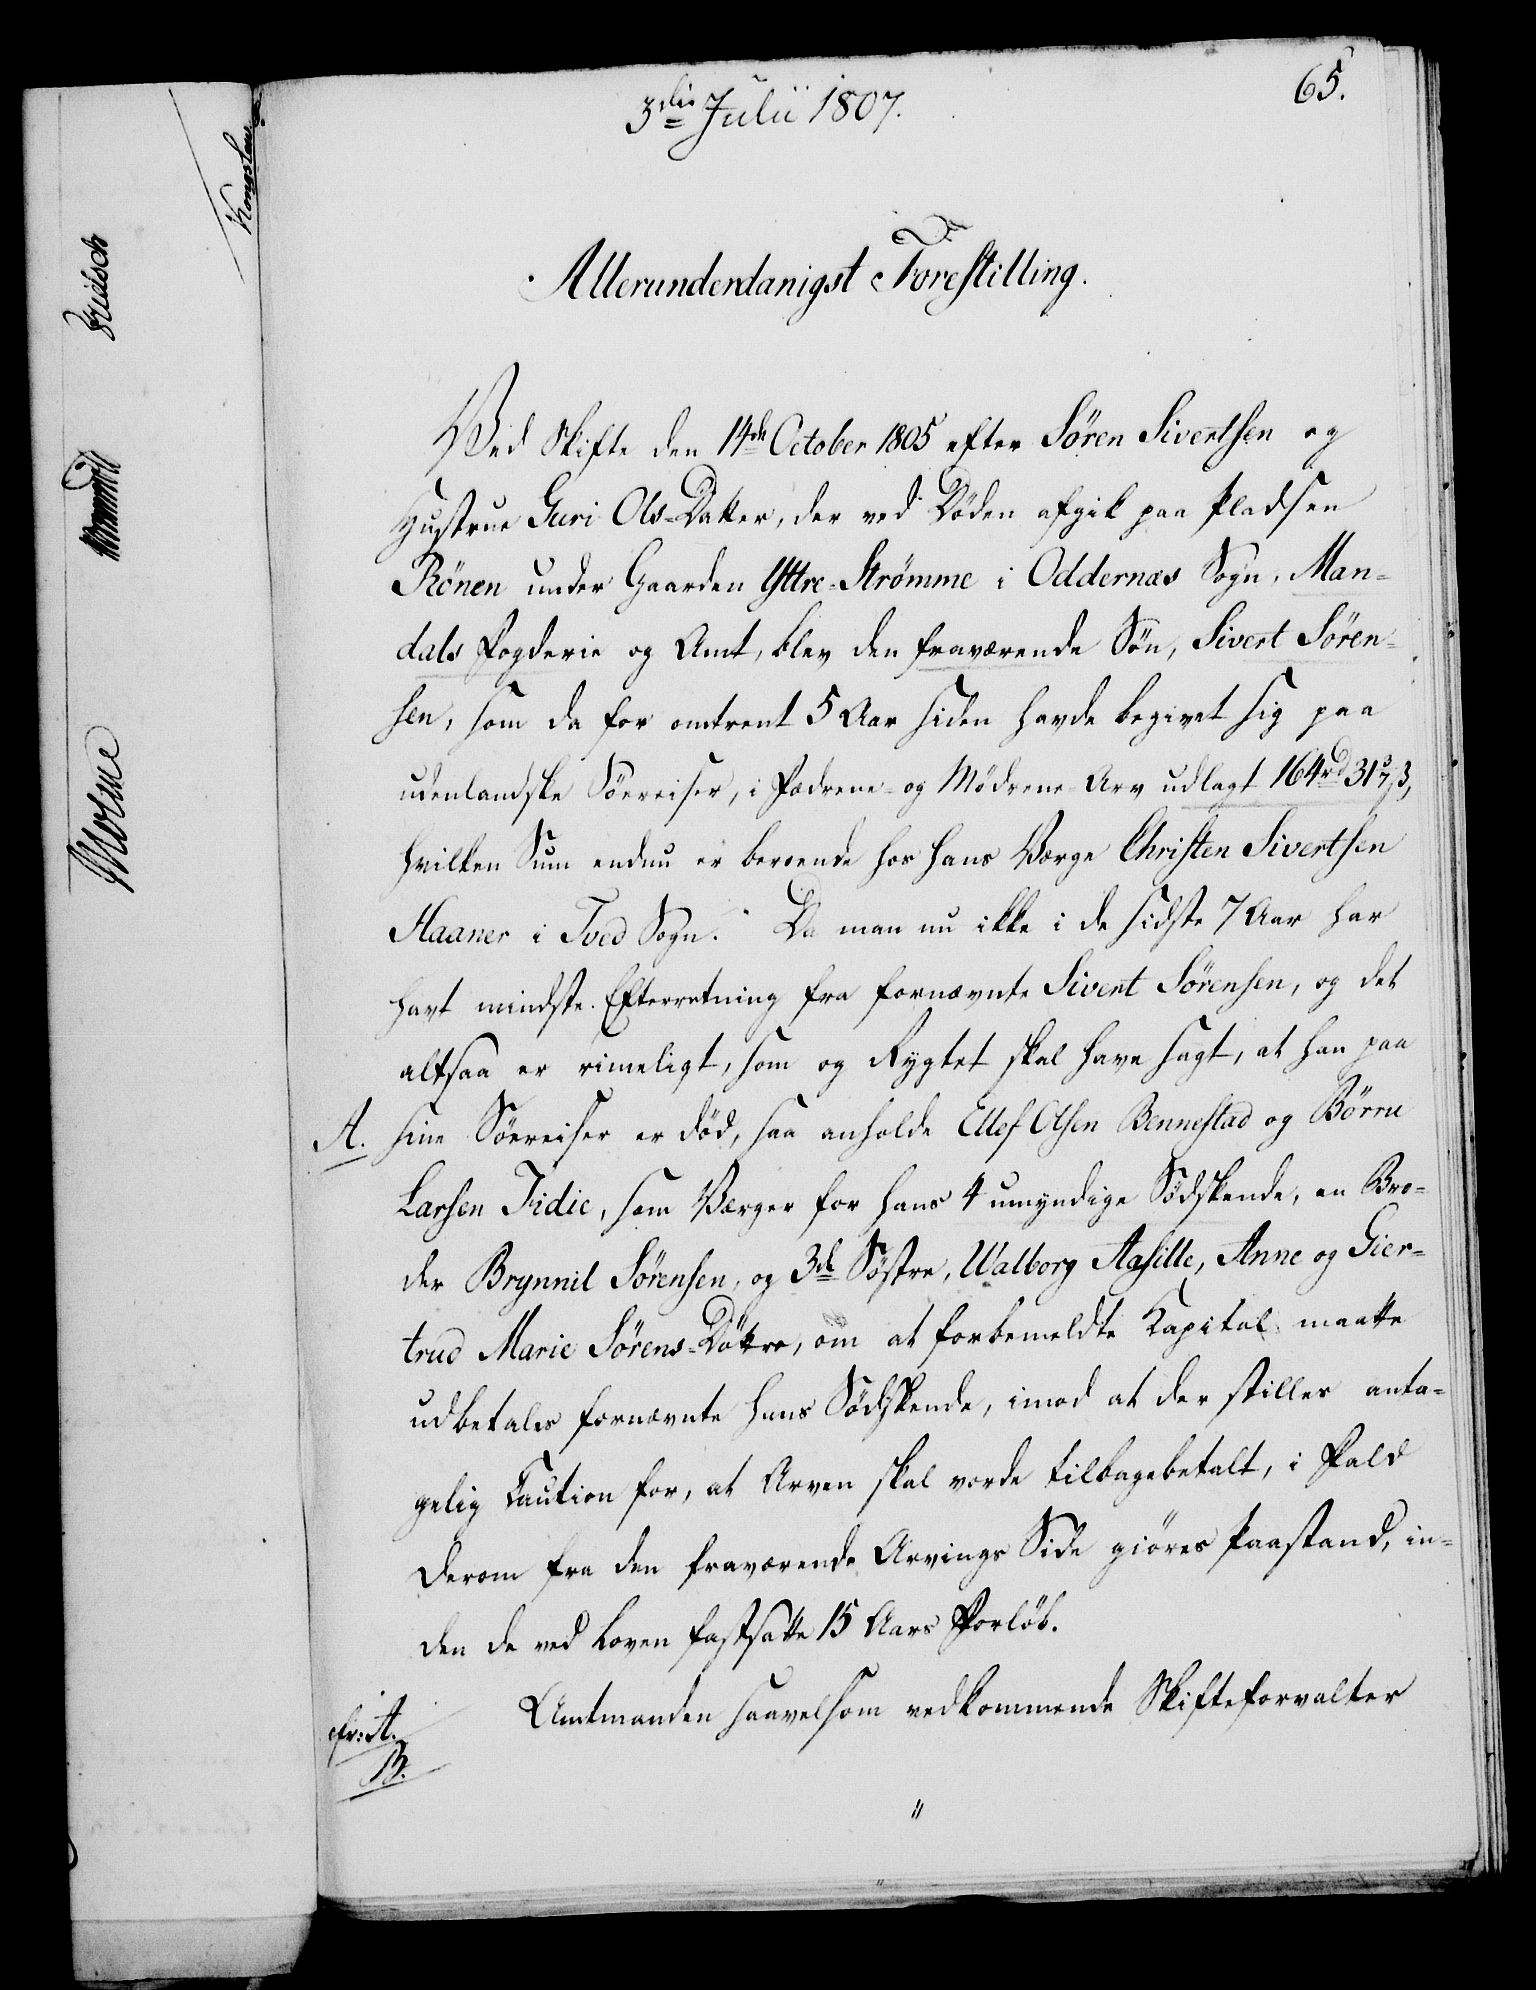 3die Julii 1807.
65.
Allerunderdanigst Forestilling.
Ved Skifte den 14de October 1805 efter Sören Sivertsen og
Hustrue Guri Ols-Datter, der ved Döden afgik paa Pladsen
Rönen under Gaarden Yttre-Strömme i Oddernæs Sogn, Man-
dals Fogderie og Amt, blev den fraværende Sön, Sivert Sören-
sen, som da for omtrent 5 Aar siden havde begivet sig paa
udenlandske Söereiser, i Fædrene- og Mödrene-Arv udlagt 164 rd 31 3/7 ß,
hvilken Sum endnu er beroende hos hans Værge Christen Sivertsen
Haaner i Tved Sogn. Da man nu ikke i de sidste 7 Aar har
havt mindste Efterretning fra fornævnte Sivert Sörensen, og det
altsaa er rimeligt, som og Rygtet skal have sagt, at han paa
A. sine Söereiser er död, saa anholde Ellef Olsen Bennestad og Börru
Larsen Tidie, som Værger for hans 4 umyndige Södskende, en Bro-
der Brynnil Sörensen, og 3de Söstre, Walborg Aasille, Anne og Gier-
trud Marie Sörens-Döttre, om at forbemeldte Kapital maatte
udbetales fornævnte hans Södskende, imod at der stilles anta-
gelig Caution for, at Arven skal vorde tilbagebetalt, i Fald
derom fra den fraværende Arvings Side giöres Paastand, in-
den de ved Loven fastsatte 15 Aars Forlöb.
Amtmanden saavelsom vedkommende Skifteforvalter
cfr: A.
B.
"
Kongslew
Fritsch
Molme